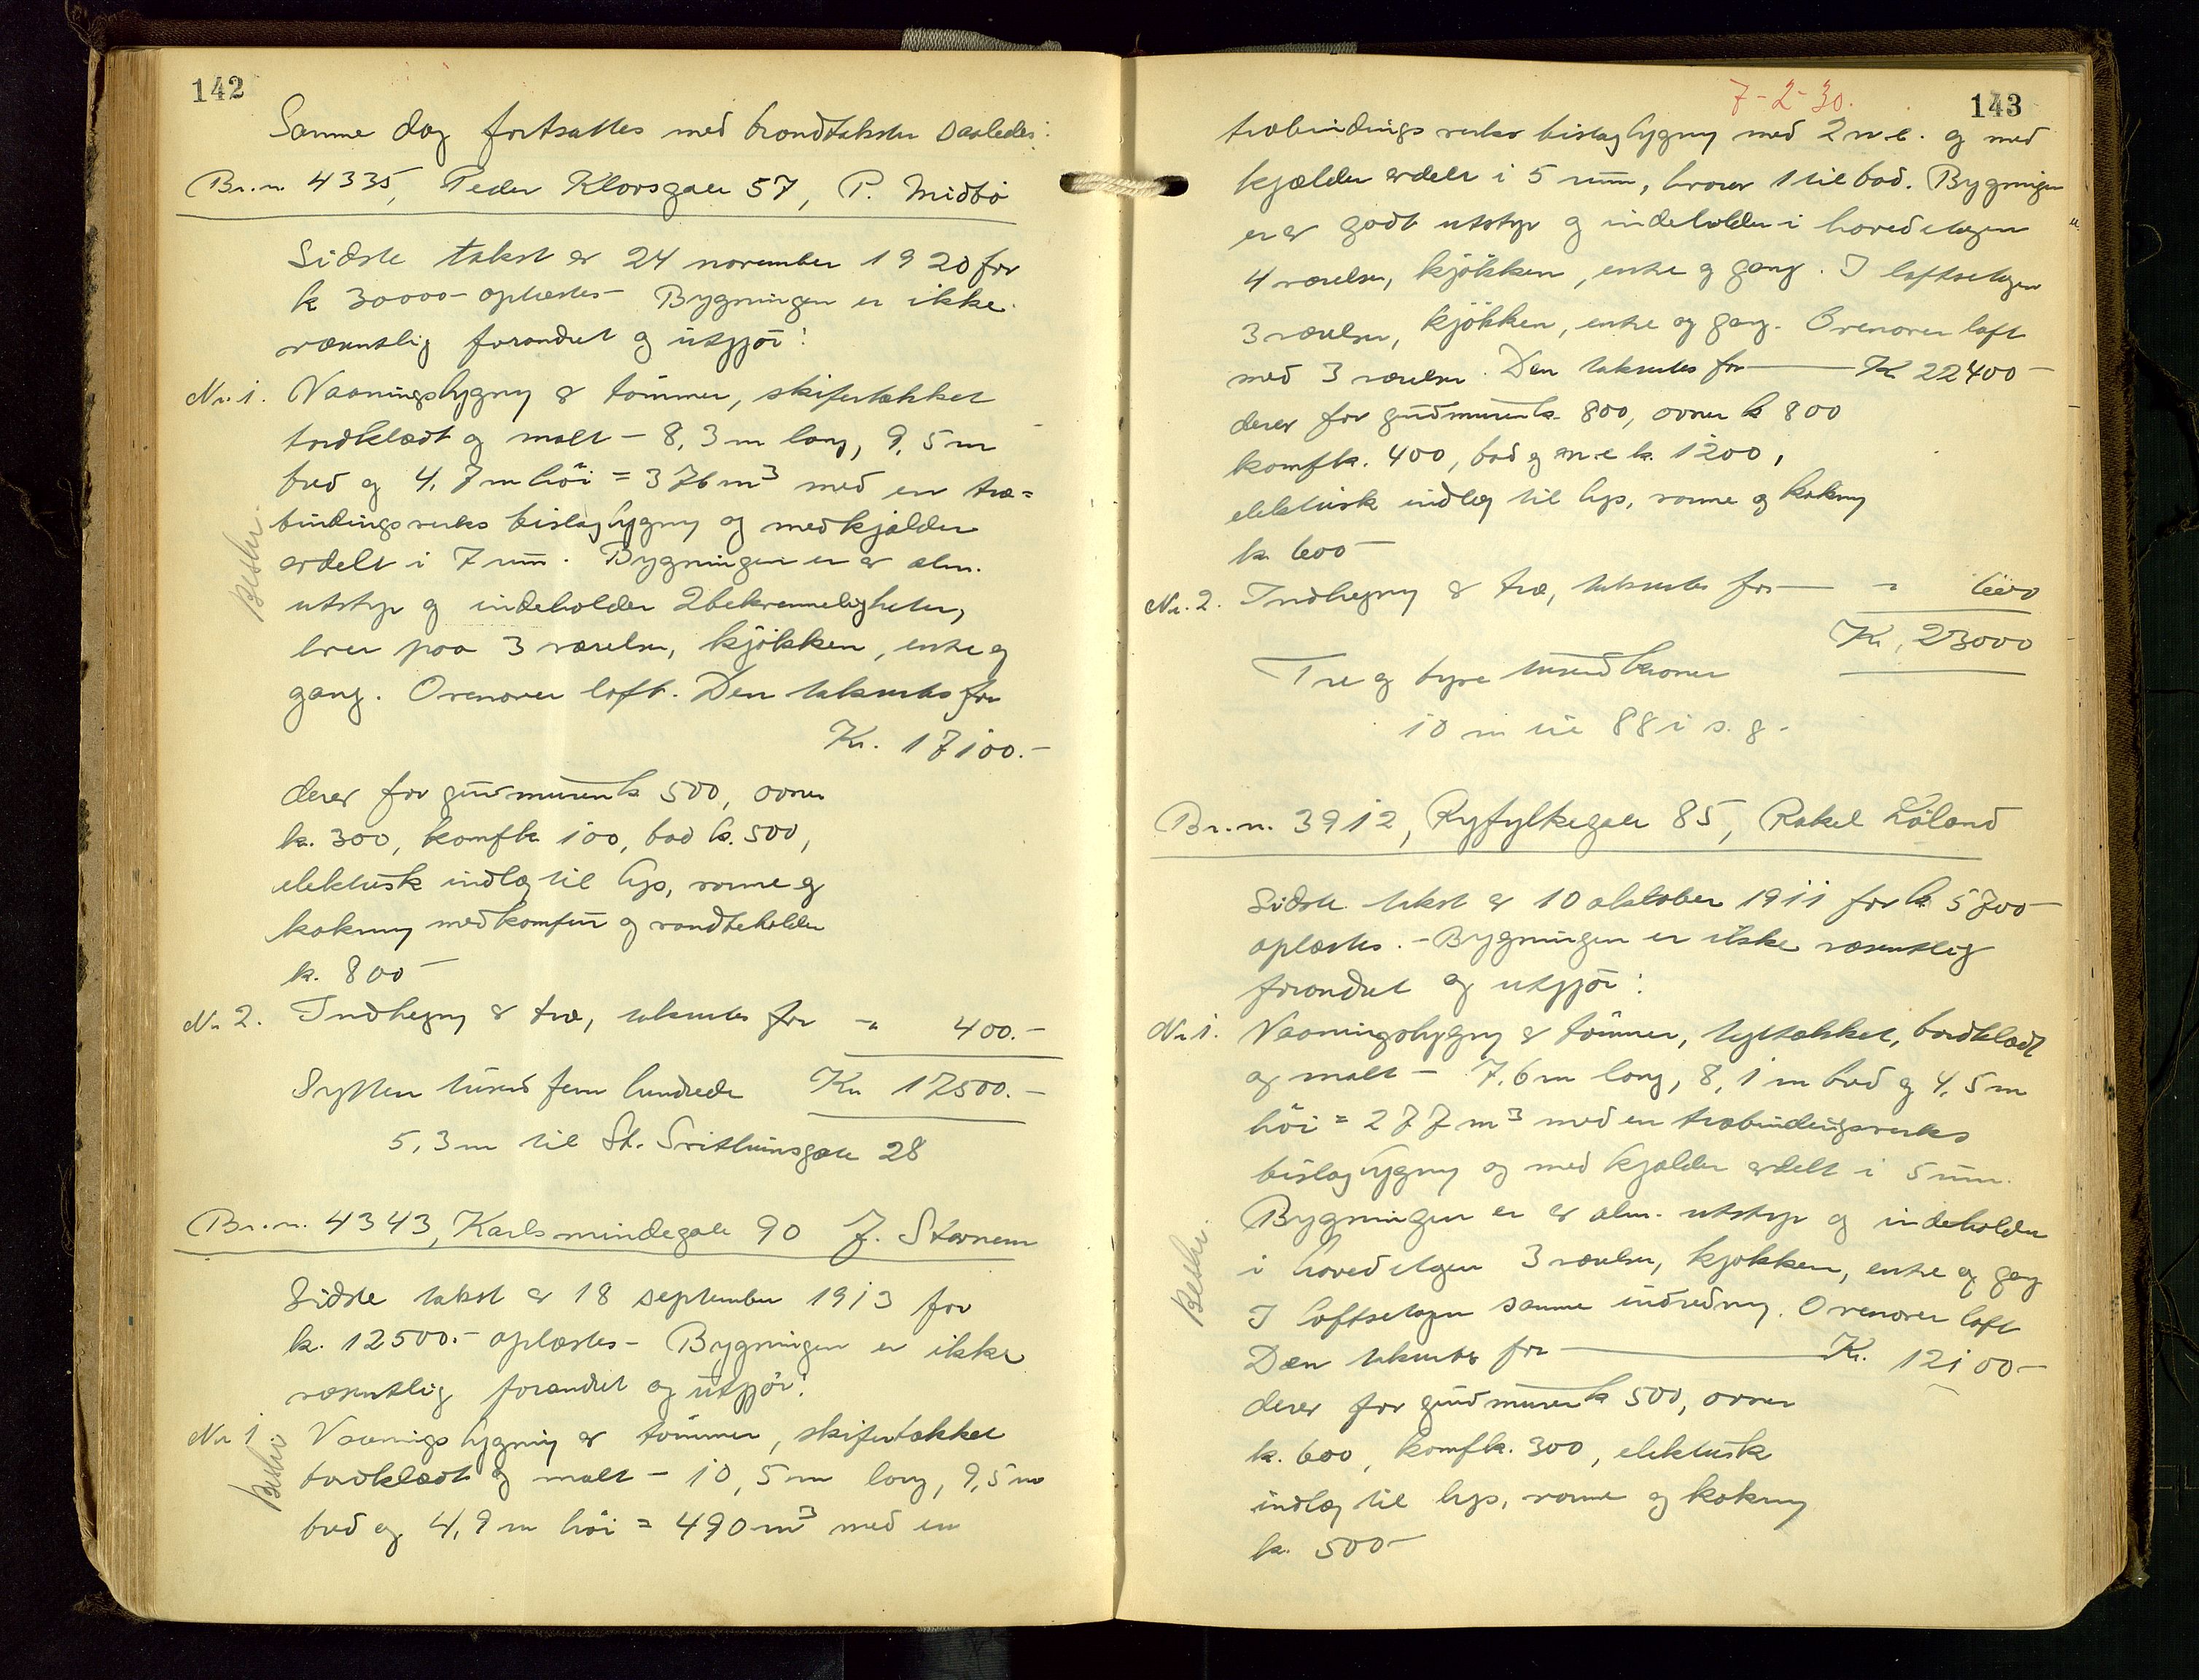 142
Samme dag fortsattes med brandtakster saaledes:
Br.n. 4335, Peder Klovsgate 57, P. Midbö
Sidste takst er 24 november 1920 for
k 30000- oplæstes- Bygningen er ikke
væsentlig forandret og utgjör:
Nr. 1. Vaaningsbygng af tömmer, skifertækket
bordklædt og malt - 8,3 m lang, 9,5 m
bred og 4,7 m höi = 376 m³ med en træ=
bindingsverks bislagbygng og med kjælder
avdelt i 7 rum. Bygningen er av alm.
utstyr og indeholder 2 bekvemmeligheter,
hver paa 3 værelser, kjökken, entre og
gang. Ovenover loft. Den takseres for
Kr. 17100.-
derav for grundmuren k 500, ovner
k. 300, komf k 100, bad k. 500,
elektrisk indlæg til lys, varme og
kokning med komfur og vandbeholder
k. 800-
Nr 2. Indhegng af træ, takseres for - " 400.-
Sytten tusend fem hundrede Kr 17500.-
5,3 m til St. Svithunsgate 28
Br.n. 4343, Karlsmindegate 90 J. Stornem
Sidste takst er 18 september 1913 for
k. 12500.- oplæstes- Bygningen er ikke
væsentlig forandret og utgjör:
Nr 1. Vaaningsbygning af tömmer, skifertækket
bordklædt og malt - 10,5 m lang, 9,5 m
bred og 4,9 m höi = 490 m³ med en
Beskr.
Beskr.
7-2-30.
143
træbindingsverks bislagbygng med 2 w.c. og med
kjælder avdelt i 5 rum, hvorav 1 til bad. Bygningen
er av godt utstyr og indeholder i hovedetagen
4 værelser, kjökken, entre og gang. I loftsetagen
3 værelser, kjökken, entre og gang. Ovenover loft
med 3 værelser. Den takseres for - Kr 22400-
derav for grundmuren k. 800, ovner k 800
komf k. 400, bad og w.c k. 1200,
elektrisk indlæg til lys, varme og kokning
k. 600-
Nr. 2. Indhegng af træ, takseres for - " 600
Kr. 23000
Tre og tyve tusend kroner
10 m til 88 i s. g.
Br.n. 3912, Ryfylkegate 85, Rakel Löland
Sidste takst er 10 oktober 1911 for k 5700-
oplæstes.- Bygningen er ikke væsentlig
forandret og utgjör:
Nr 1. Vaaningsbygng af tömmer, tegltækket, bordklædt
og malt - 7,6 m lang, 8,1 m bred og 4,5 m
höi = 277 m³ med en træbindingsverks
bislagbygng og med kjælder avdelt i 5 rum.
Bygningen er av alm. utstyr og indeholder
i hovedetagen 3 værelser, kjökken, entre og gang
I loftsetagen samme indredning. Ovenover loft
Den takseres for - Kr. 12100-
derav for grundmuren k 500, ovner
k. 600, komf k. 300, elektrisk
indlæg til lys, varme og kokning
k. 500-
Beskr.